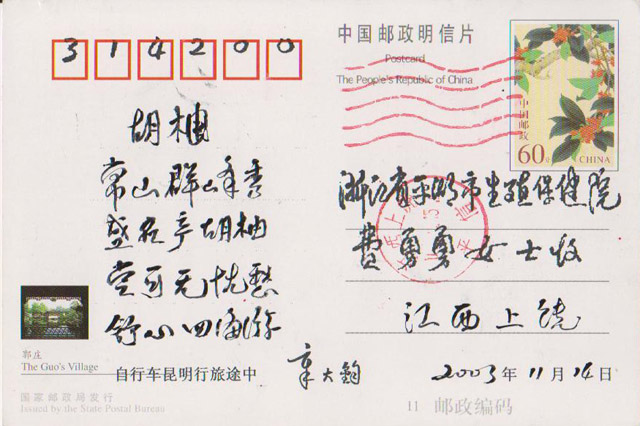 314200
中国邮政明信片
Postcard
The People's Republic of China
中国邮政
60分
CHINA
胡柚
常山群峰秀
盛名亭胡柚
尝可无忧愁
舒心四海游
浙江省平湖市生殖保健院
费勇勇女士收
江西上饶
郭庄
The Guo's Village
自行车昆明行旅途中
章大钧
2003年11月14日
国家邮政局发行
Issued by the State Postal Bureau
11
邮政编码